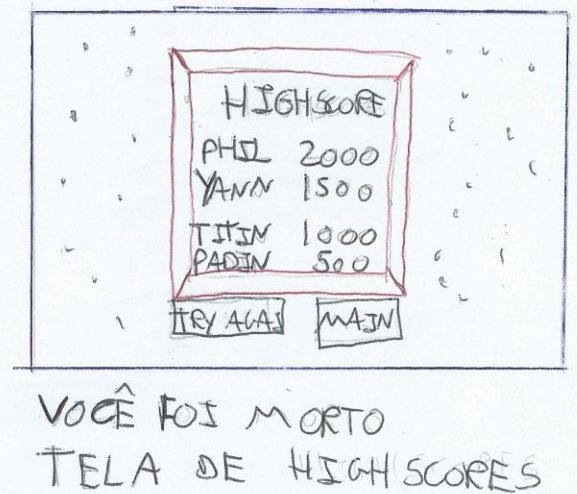 HIGHSCORE
PHIL 2000
YANN 1500
TITIN 1000
PADIN 500
TRY AGAI MAIN
VOCÊ FOI MORTO
TELA DE HIGHSCORES